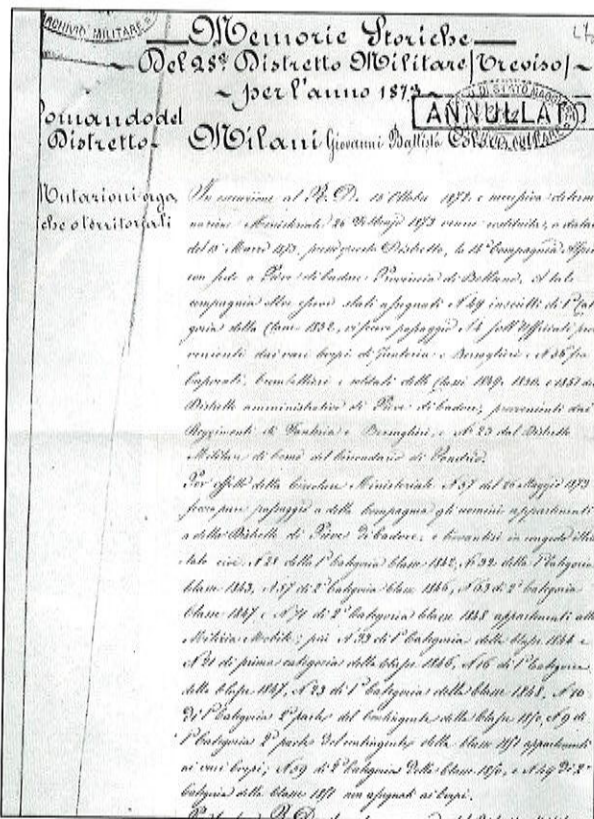 ARCHIVIO MILITARE
Memorie Storiche
Del 28° Distretto Militare (Treviso)
per l'anno 1873
ANNULLATO
Comando del
Distretto
Milani Giovanni Battista
Mutazioni orga
che o territoriali
In esecuzione al R. D. 15 Ottobre 1872 e successiva determ
nazione Ministeriale 26 Febbrajo 1873 venne costituita, a datar
del 1° Marzo 1873, presso questo Distretto, la Compagnia Alpin
con sede a Pieve di Cadore Provincia di Belluno. A tale
compagnia oltre essere stati assegnati N. 49 inscritti di 1ª Cat
goria della Classe 1852, vi fecero passaggio N. sott'Ufficiali pro
venienti dai vari Corpi di fanteria e Bersaglieri, N. 36 fra
Caporali, trombettieri e soldati delle Classi 1849, 1850, e 1851 del
Distretto amministrativo di Pieve di Cadore, provenienti dai
Reggimenti di Fanteria e Bersaglieri, e N. 23 dal Distretto
Militare di Como del Circondario di Sondrio.
Per effetto della Circolare Ministeriale N. 37 del 26 Maggio 1873
fecero pure passaggio a detta Compagnia gli uomini appartenenti
a detto Distretto di Pieve di Cadore, e trovantisi in congedo illim
tato cioè N. 28 della 1ª Categoria Classe 1842, N. 32 della 1ª Categoria
Classe 1843, N. 57 di 2ª Categoria Classe 1846, N. 63 di 2ª Categoria
Classe 1847 e N. 71 di 2ª Categoria Classe 1848 appartenenti alla
Milizia Mobile; più N. 33 di 1ª Categoria della Classe 1844 e
N. 21 di prima categoria della Classe 1846, N. 16 di 1ª Categoria
della Classe 1847, N. 23 di 1ª Categoria della Classe 1848, N. 10
di 1ª Categoria 2ª parte del Contingente della Classe 1850, N. 9 di
1ª Categoria 2ª parte del contingente della Classe 1851 appartenenti
ai vari Corpi; N. 59 di 2ª Categoria della Classe 1850, e N. 49 di 2ª
Categoria della Classe 1851 non assegnati ai Corpi.